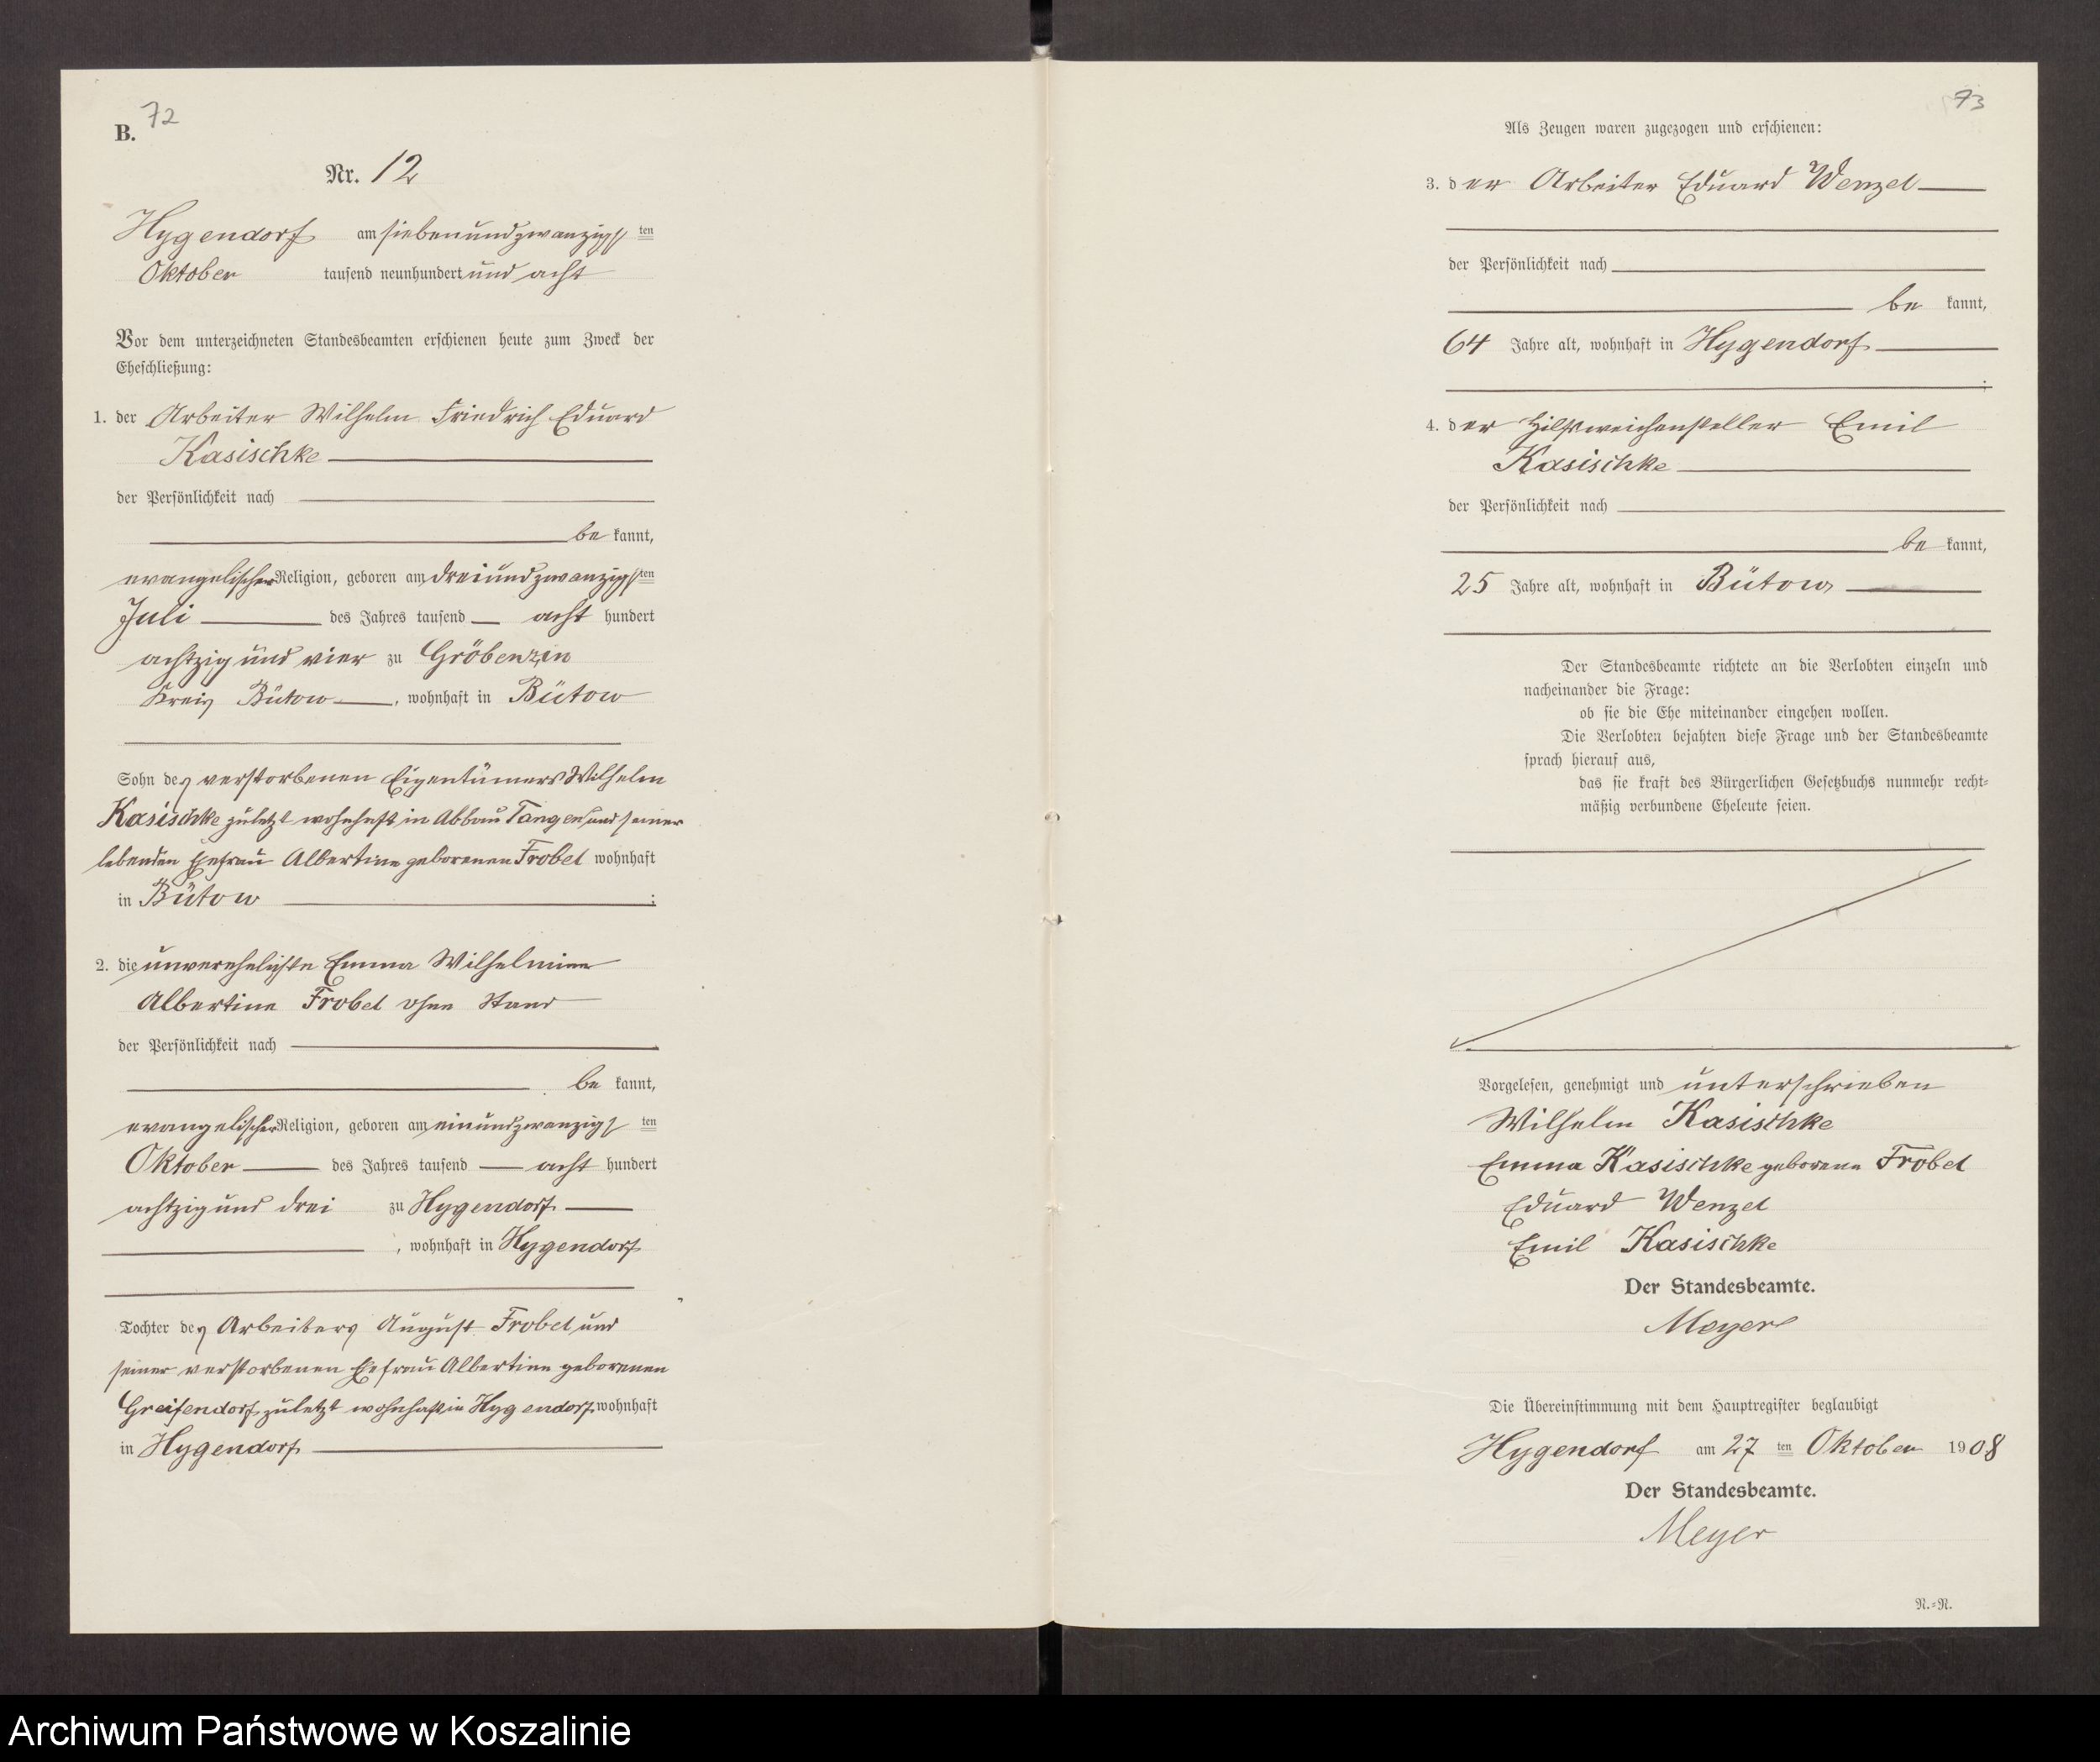 72
B.
Nr. 12
Hygendorf am siebenundzwanzigsten
Oktober tausend neunhundert und acht
Vor dem unterzeichneten Standesbeamten erschienen heute zum Zweck der
Eheschließung:
1. der Arbeiter Wilhelm Friedrich Eduard
Kasischke
der Persönlichkeit nach
be kannt,
evangelischer Religion, geboren am dreiundzwanzigsten
Juli des Jahres tausend acht hundert
achtzig und vier zu Gröbenzin
Kreis Bütow, wohnhaft in Bütow
Sohn des verstorbenen Eigentümers Wilhelm
Kasischke zuletzt wohnhaft in Abbau Tangen und seiner
lebenden Ehefrau Albertine geborenen Frobel wohnhaft
in Bütow ;
2. die unverehelichte Emma Wilhelmine
Albertine Frobel ohne Stand
der Persönlichkeit nach
be kannt,
evangelischer Religion, geboren am einundzwanzigsten
Oktober des Jahres tausend acht hundert
achtzig und drei zu Hygendorf
, wohnhaft in Hygendorf
Tochter des Arbeiters August Frobel und
seiner verstorbenen Ehefrau Albertine geborenen
Greifendorf zuletzt wohnhaft in Hygendorf wohnhaft
in Hygendorf
73
Als Zeugen waren zugezogen und erschienen:
3. der Arbeiter Eduard Wenzel
der Persönlichkeit nach
be kannt,
64 Jahre alt, wohnhaft in Hygendorf
;
4. der Hilfsweichensteller Emil
Kasischke
der Persönlichkeit nach
be kannt,
25 Jahre alt, wohnhaft in Bütow
Der Standesbeamte richtete an die Verlobten einzeln und
nacheinander die Frage:
ob sie die Ehe miteinander eingehen wollen.
Die Verlobten bejahten diese Frage und der Standesbeamte
sprach hierauf aus,
das sie kraft des Bürgerlichen Gesetzbuchs nunmehr recht-
mäßig verbundene Eheleute seien.
Vorgelesen, genehmigt und unterschrieben
Wilhelm Kasischke
Emma Kasischke geborene Frobel
Eduard Wenzel
Emil Kasischke
Der Standesbeamte.
Meyer
Die Übereinstimmung mit dem Hauptregister beglaubigt
Hygendorf am 27 ten Oktober 1908
Der Standesbeamte.
Meyer
N.-N.
Archiwum Państwowe w Koszalinie